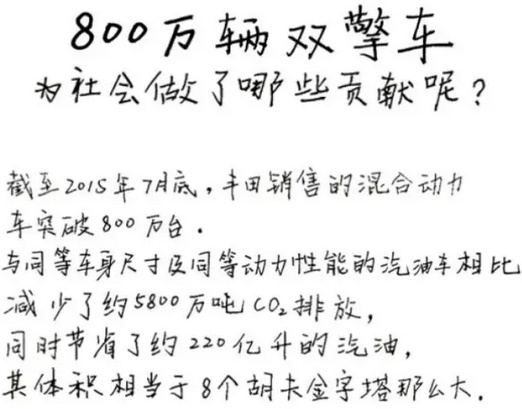 800万辆双擎车
为社会做了哪些贡献呢？
截至2015年7月底，丰田销售的混合动力
车突破800万台.
与同等车身尺寸及同等动力性能的汽油车相比
减少了约5800万吨CO₂排放，
同时节省了约220亿升的汽油，
其体积相当于8个胡夫金字塔那么大.